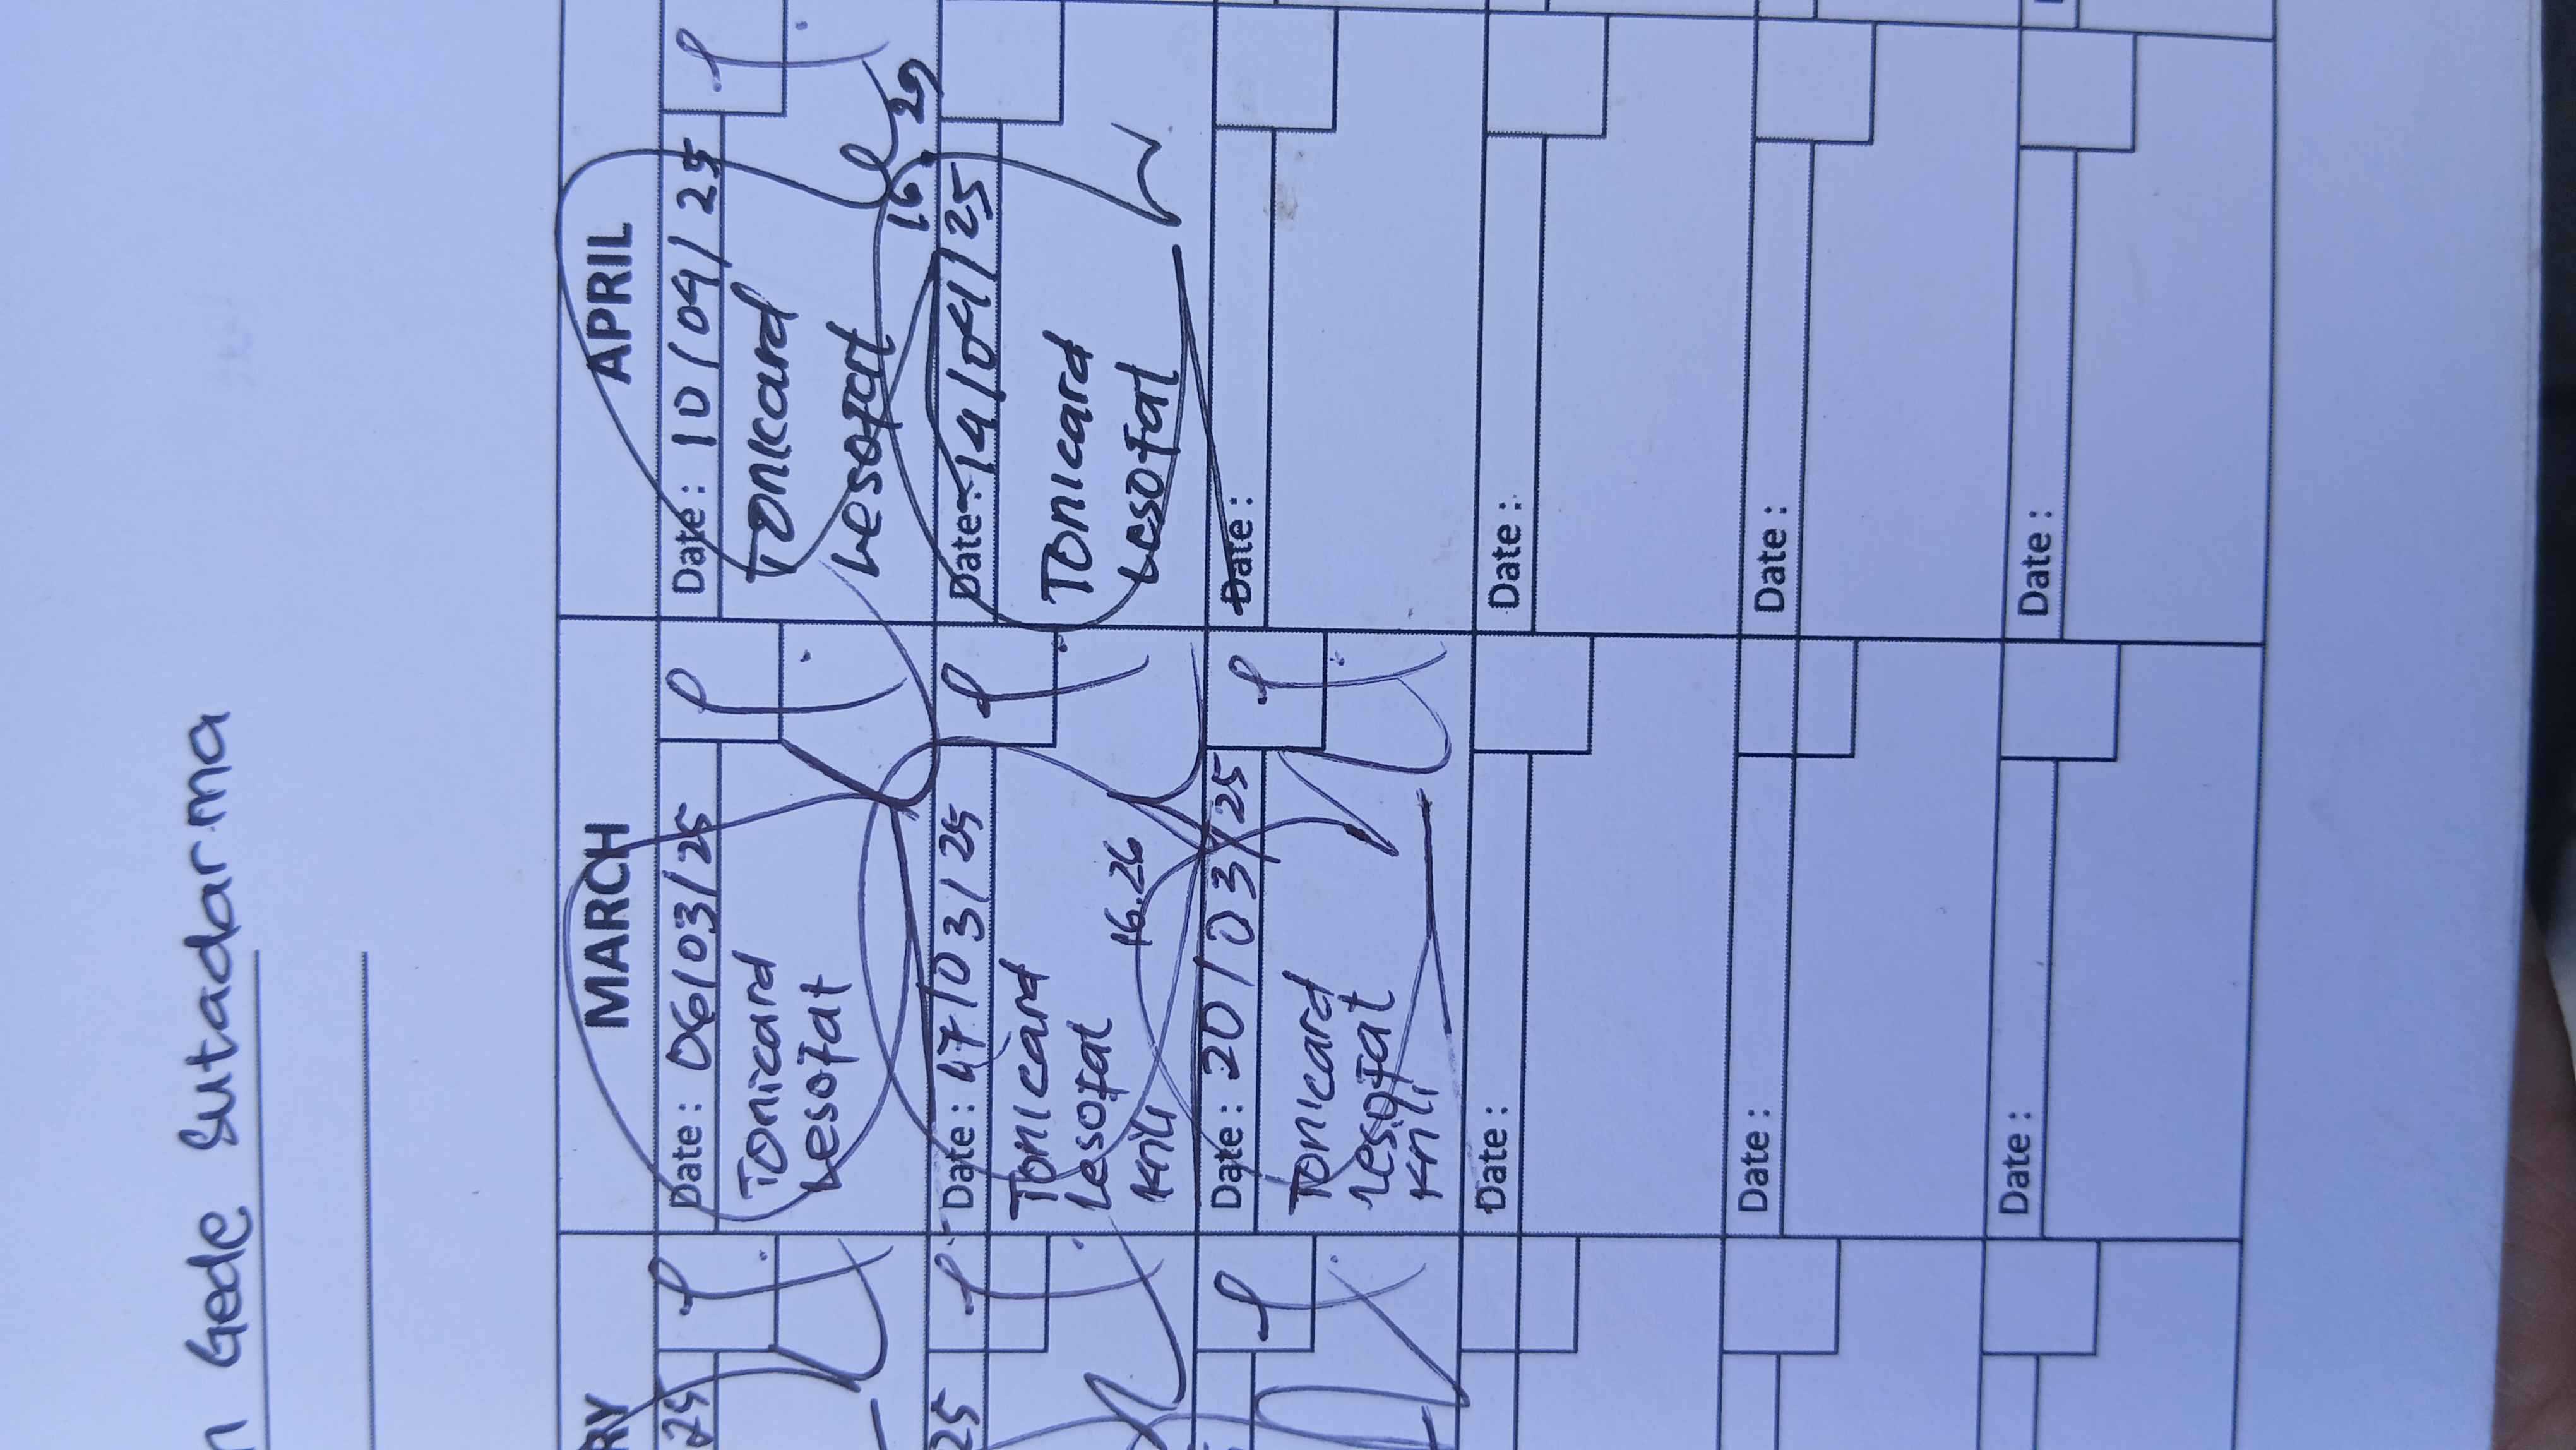 n Gede Sutadarma
RY
25
25
MARCH
Date : 06/03/25
Tonicard
Lesofat
Date : 17/03/25
Tonicard
Lesofat
Knili
16.26
Date : 20/03/25
Tonicard
Lesofat
Knili
Date :
Date :
Date :
APRIL
Date : 10/04/25
Tonicard
Lesofat
16.29
Date : 14/04/25
Tonicard
Lesofat
Date :
Date :
Date :
Date :